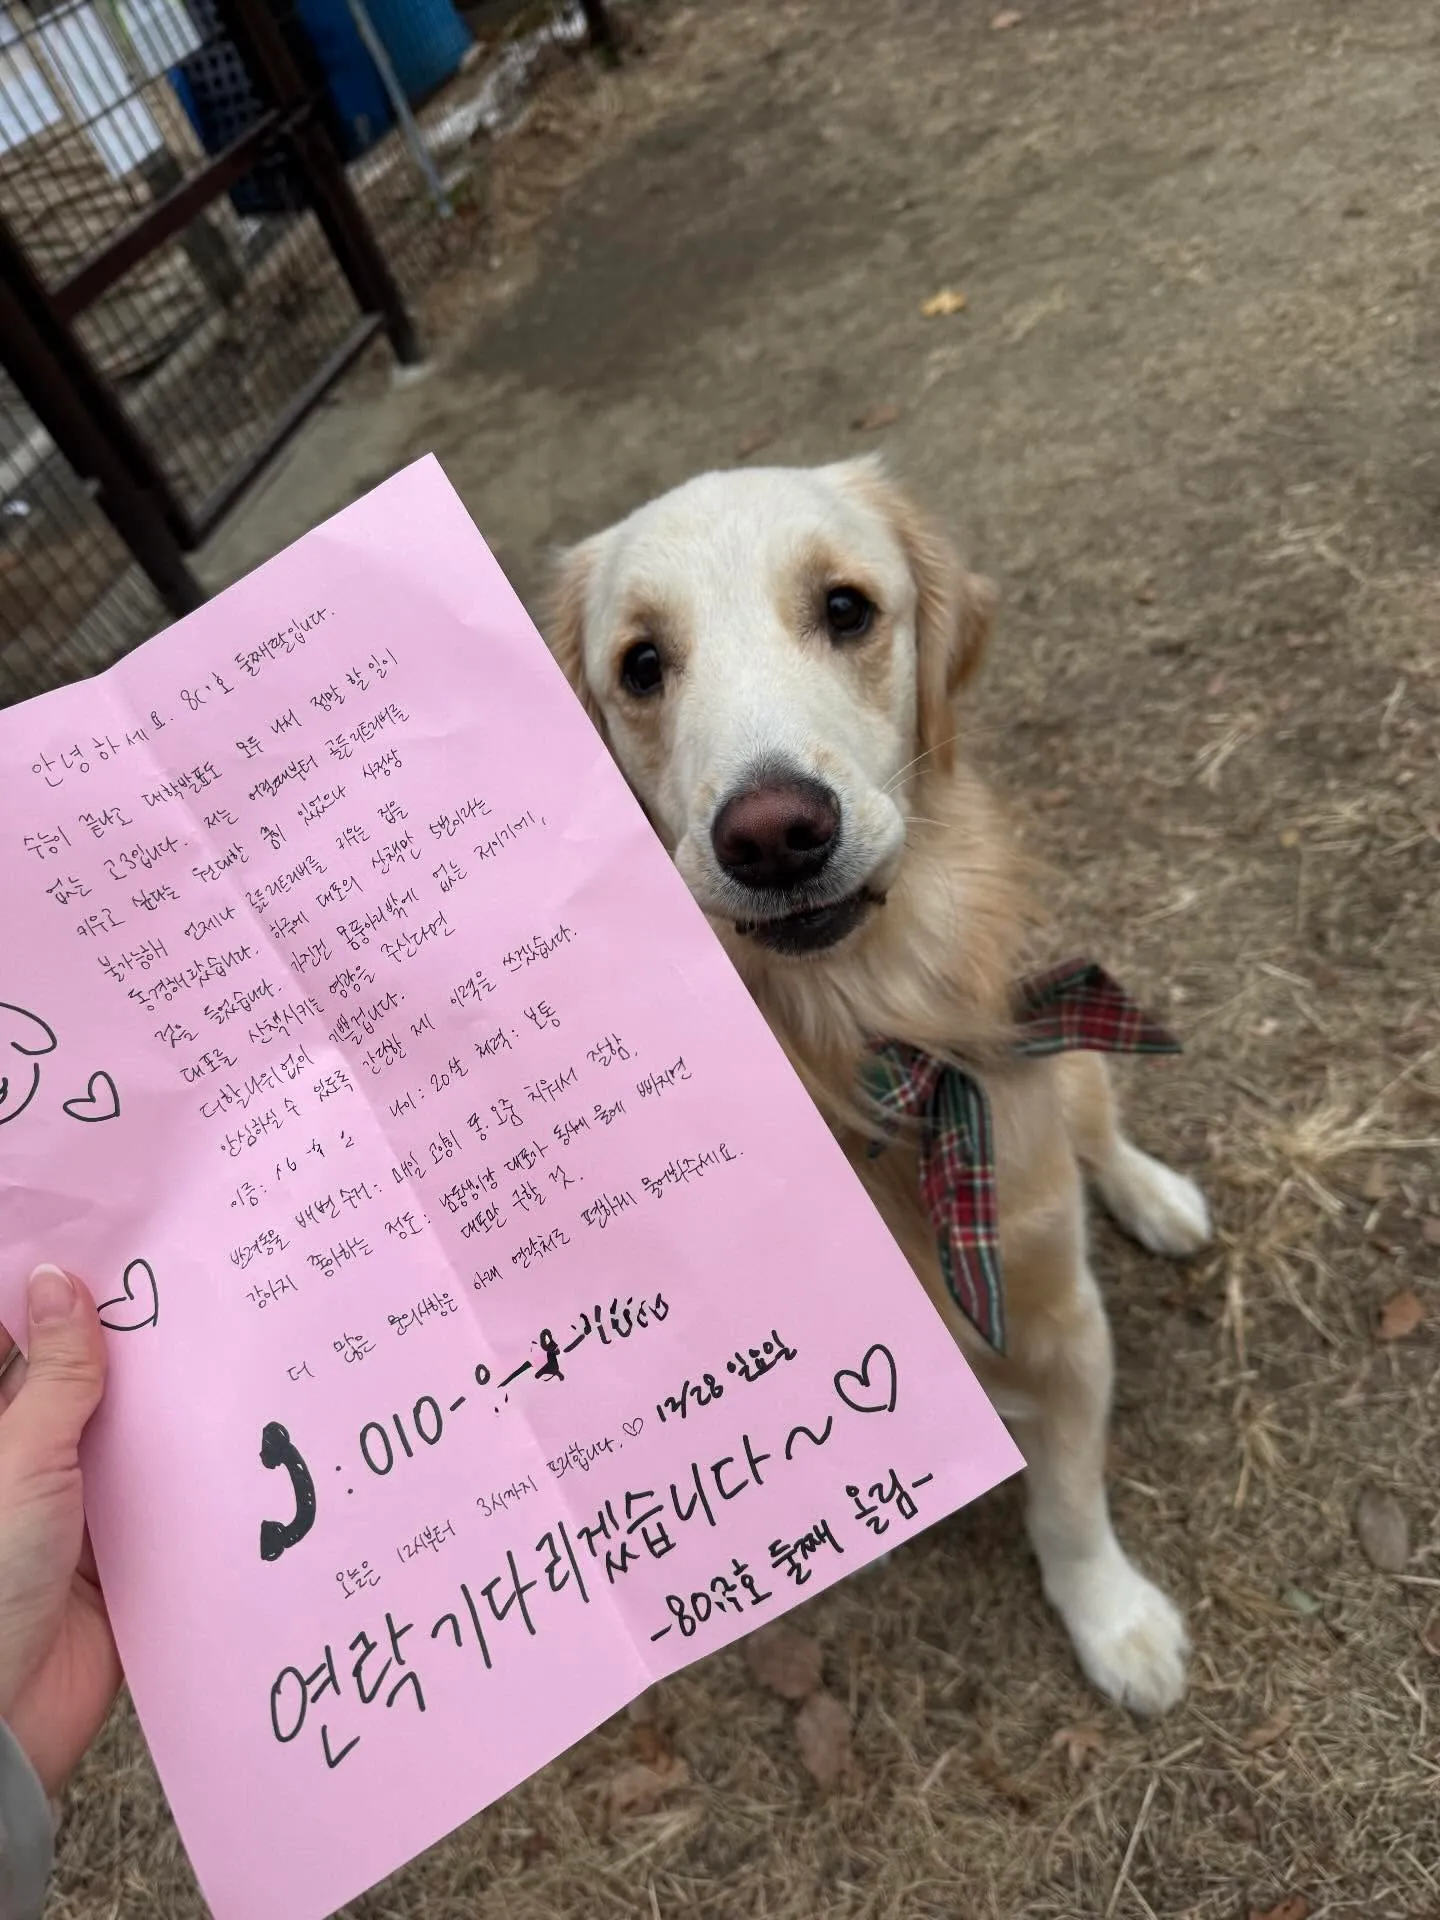 안녕하세요. 80 호 둘째딸입니다.
수능이 끝나고 대학발표도 모두 나서 정말 할 일이
없는 고3입니다. 저는 어릴때부터 골든리트리버를
키우고 싶다는 원대한 꿈이 있었으나 사정상
불가능해 언제나 골든리트리버를 키우는 집을
동경해왔습니다. 하루에 대포의 산책만 5번이라는
것을 들었습니다. 가진건 몸뚱아리밖에 없는 저이기에,
대포를 산책시키는 영광을 주신다면
더할나위없이 기쁠겁니다.
안심하실 수 있도록 간단한 제 이력을 쓰겠습니다.
이름: 나이: 20살 체력: 보통
반려동물 배변 수거: 매일 고양이 똥.오줌 치워서 잘함.
강아지 좋아하는 정도: 남동생이랑 대포가 동시에 물에 빠지면
대포만 구할 것.
더 많은 문의사항은 아래 연락처로 편하게 물어봐주세요.
: 010-
오늘은 12시부터 3시까지 프리합니다. ♡ 12/28 일요일
연락 기다리겠습니다~ ♡
-80 호 둘째 올림-